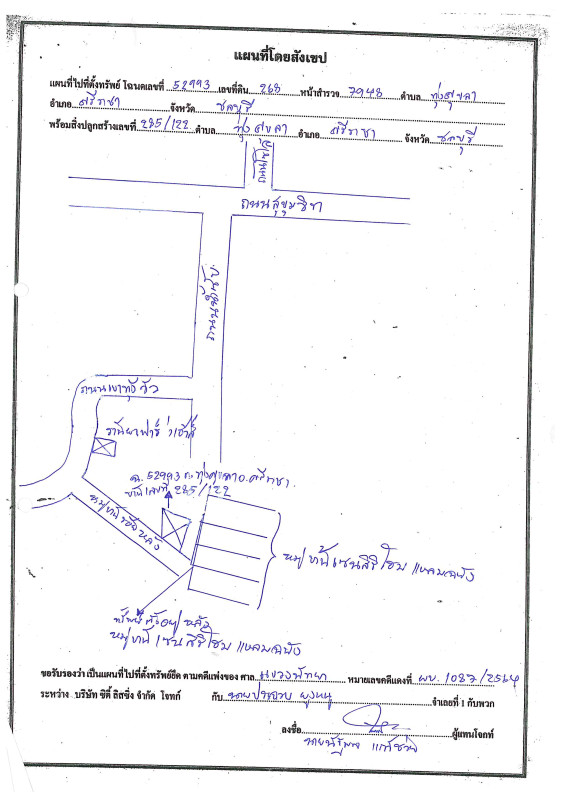 แผนที่โดยสังเขป
แผนที่ไปที่ตั้งทรัพย์ โฉนดเลขที่ 52993 เลขที่ดิน 268 หน้าสำรวจ 7948 ตำบล ทุ่งสุขลา
อำเภอ ศรีราชา จังหวัด ชลบุรี
พร้อมสิ่งปลูกสร้างเลขที่ 285/122 ตำบล ทุ่งสุขลา อำเภอ ศรีราชา จังหวัด ชลบุรี
ถนนสุขุมวิท
ถนนเขาทุ่งวัว
ฉ. 52993 ต.ทุ่งสุขลา อ.ศรีราชา
บ้านเลขที่ 285/122
หมู่บ้านเซนสิริโฮม แหลมฉบัง
ทรัพย์ตั้งอยู่หลัง
หมู่บ้านเซนสิริโฮม แหลมฉบัง
ขอรับรองว่า เป็นแผนที่ไปที่ตั้งทรัพย์ยึด ตามคดีแพ่งของ ศาล แขวงพัทยา หมายเลขคดีแดงที่ ผบ. 1087/2564
ระหว่าง บริษัท ซีตี้ ลิสซิ่ง จำกัด โจทก์ กับ จำเลยที่ 1 กับพวก
ลงชื่อ ผู้แทนโจทก์